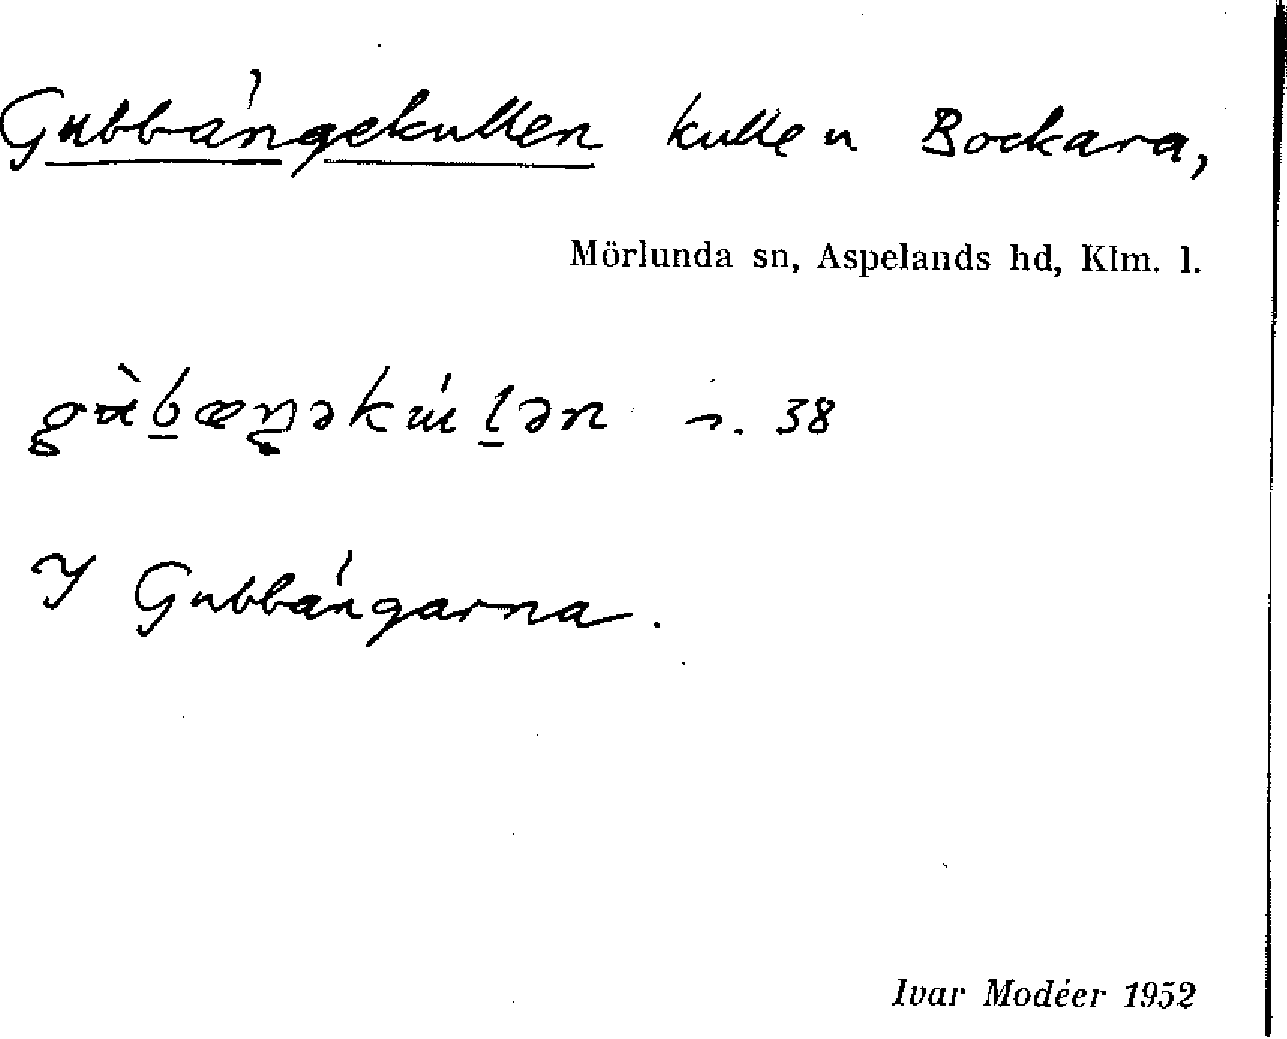 Gubbängekullen kulle u Bockara,
Mörlunda sn, Aspelands hd, Klm. l.
s. 38
I Gubbängarna.
Ivar Modéer 1952